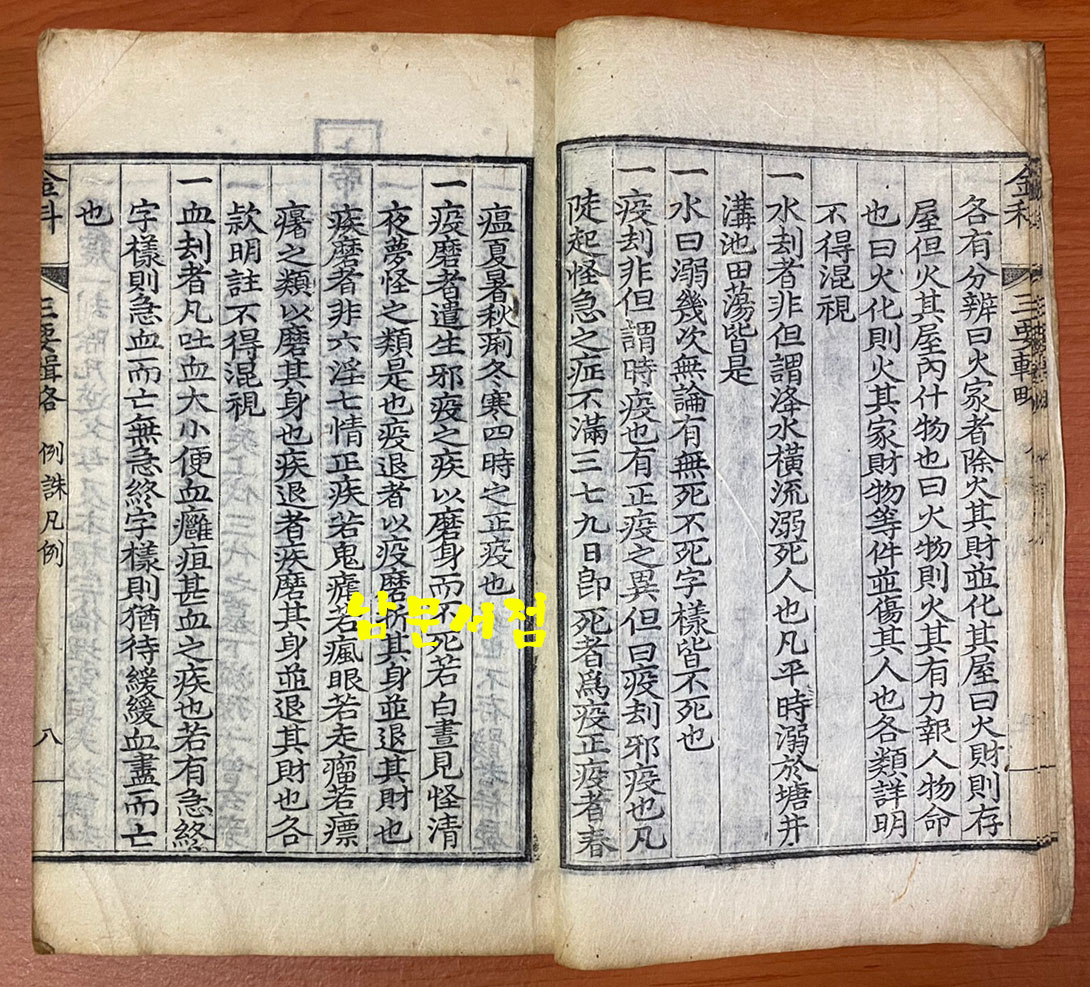 金科
三要輯畧
各有分辨曰火家者除火其財並化其屋曰火財則存
屋但火其屋內什物也曰火物則火其有力報人物命
也曰火化則火其家財物等件並傷其人也各類詳明
不得混視
一水刦者非但謂洚水橫流溺死人也凡平時溺於塘井
溝池田蕩皆是
一水曰溺幾次無論有無死不死字樣皆不死也
一疫刦非但謂時疫也有正疫之異但曰疫刦邪疫也凡
陡起怪急之症不滿三七九日卽死者爲疫正疫者春
瘟夏暑秋痢冬寒四時之正疫也
一疫磨者遣生邪疫之疾以磨身而不死若白晝見怪清
夜夢怪之類是也疫退者以疫磨折其身並退其財也
疾磨者非六淫七情正疾若鬼瘧若瘋眼若走瘤若瘭
癰之類以磨其身也疾退者疾磨其身並退其財也各
款明註不得混視
一血刦者凡吐血大小便血癰疽甚血之疾也若有急終
字樣則急血而亡無急終字樣則猶待緩緩血盡而亡
也
金科
三要輯畧
例誅凡例
八
남문서점